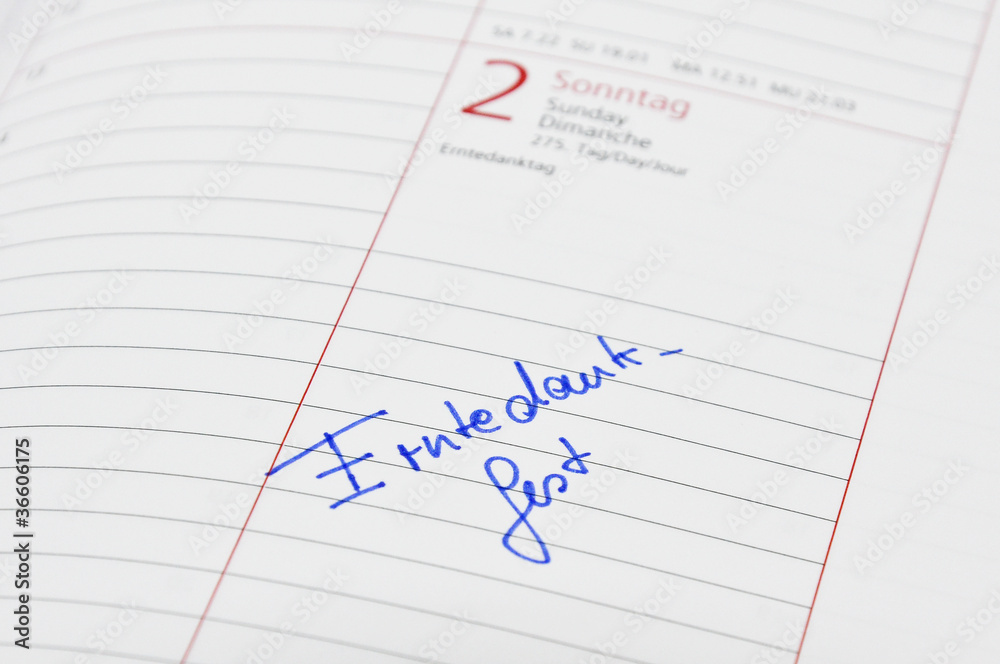 SA 7:22 SU 19:01 MA 12:51 MU 21:03
2 Sonntag
Sunday
Dimanche
275. Tag/Day/Jour
Erntedanktag
Erntedank-
fest
Adobe Stock | #36606175